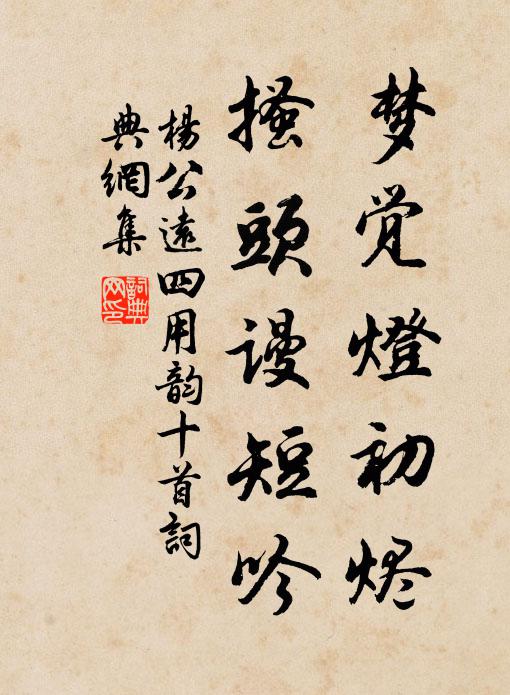 梦觉燈初烬
搔頭謾短吟
楊公遠四用韵十首詞
典網集
詞典网印